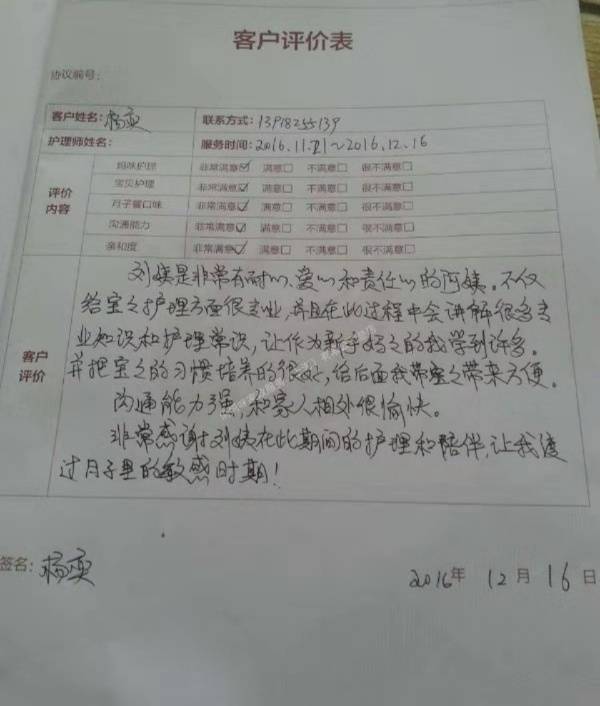 客户评价表
协议编号：
客户姓名： 联系方式：13918255139
护理师姓名： 服务时间：2016.11.21～2016.12.16
评价内容
妈咪护理 非常满意☑ 满意□ 不满意□ 很不满意□
宝贝护理 非常满意☑ 满意□ 不满意□ 很不满意□
月子餐口味 非常满意☑ 满意□ 不满意□ 很不满意□
沟通能力 非常满意☑ 满意□ 不满意□ 很不满意□
亲和度 非常满意☑ 满意□ 不满意□ 很不满意□
客户评价
刘姨是非常有耐心、爱心和责任心的阿姨。不仅
给宝宝护理方面很专业，并且在此过程中会讲解很多专
业知识和护理常识，让作为新手妈妈的我学到许多。
并把宝宝的习惯培养的很好，给后面我带宝宝带来方便。
沟通能力强，和家人相处很愉快。
非常感谢刘姨在此期间的护理和陪伴，让我度
过月子里的敏感时期！
签名：
2016年 12月 16日